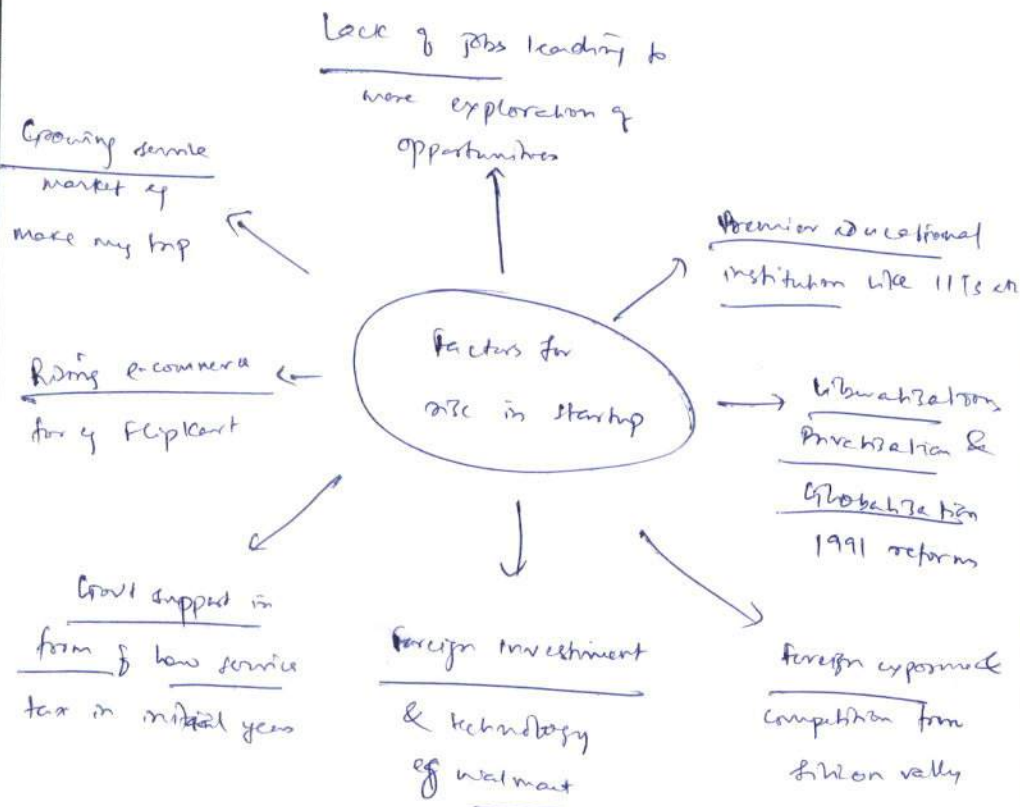 Lack of jobs leading to
more exploration of
opportunities
Growing service
market eg
make my trip
Premier educational
institution like IITs etc
Factors for
rise in startup
Rising e-commerce
for eg Flipkart
Liberalizations
Privatization &
Globalization
1991 reforms
Govt support in
from of low service
tax in initial years
Foreign investment
& technology
eg walmart
Foreign exposure &
competition from
Silicon vally